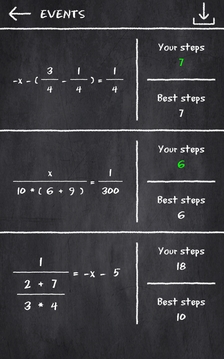 EVENTS
-x - ( 3/4 - 1/4 ) = 1/4
Your steps
7
Best steps
7
x / 10 * ( 6 + 9 ) = 1/300
Your steps
6
Best steps
6
1 / ( 2 + 7 / 3 * 4 ) = -x - 5
Your steps
18
Best steps
10